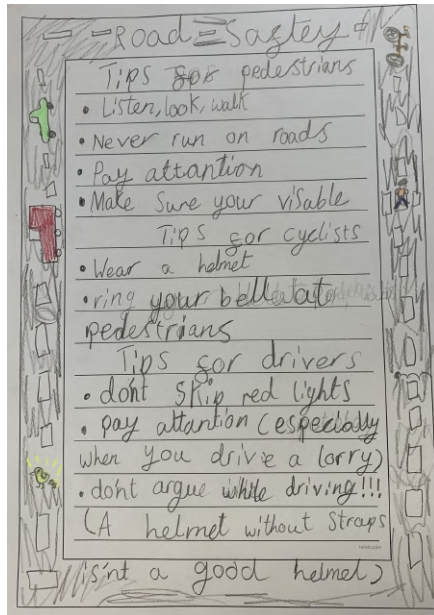 Road Saftey
Tips for pedestrians
• Listen, look, walk
• Never run on roads
• Pay attantion
• Make sure your visable
Tips for cyclists
• Wear a helmet
• ring your bell at
pedestrians
Tips for drivers
• don't skip red lights
• pay attantion (especially
when you drive a lorry)
• don't argue while driving!!!
(A helmet without straps
is'nt a good helmet)